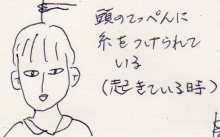 頭のてっぺんに
糸をつけられて
いる
(起きている時)